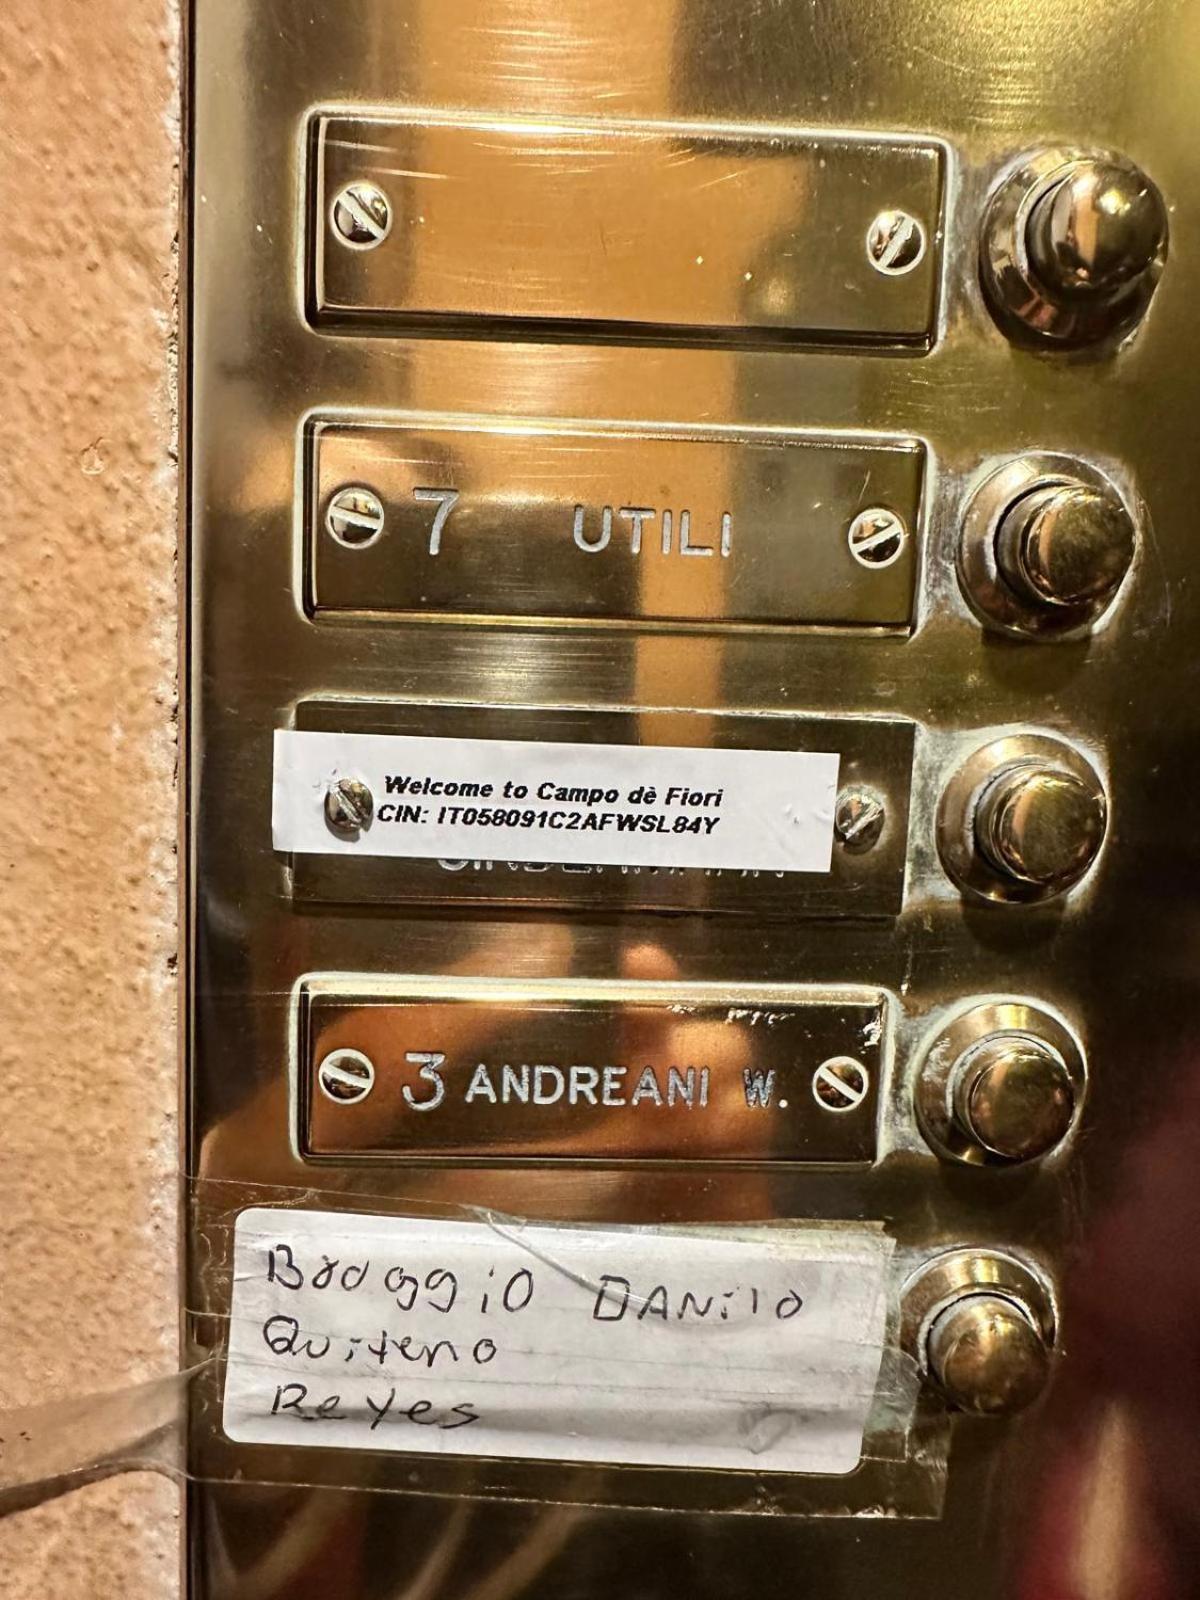 7 UTILI
Welcome to Campo dè Fiori
CIN: IT058091C2AFWSL84Y
3 ANDREANI W.
Baoggio DANilo
Quiteno
Reyes